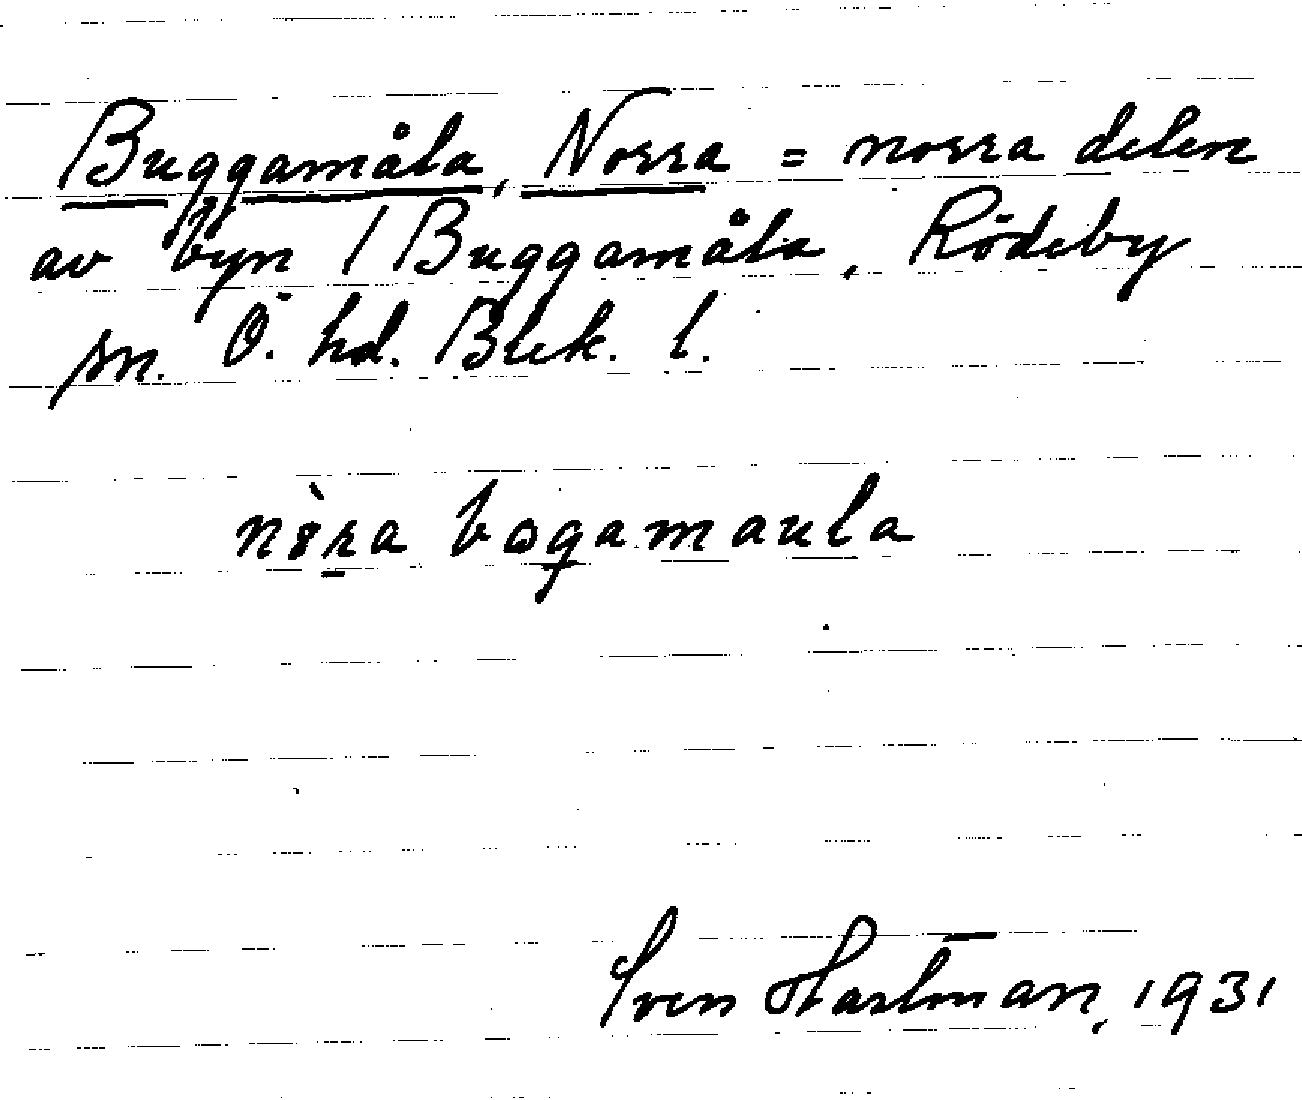 Buggamåla, Norra = norra delen
av byn / Buggamåla, Rödeby
sn. Ö. hd. Blek. l.
nòra bogamaula
Sven Hartman, 1931